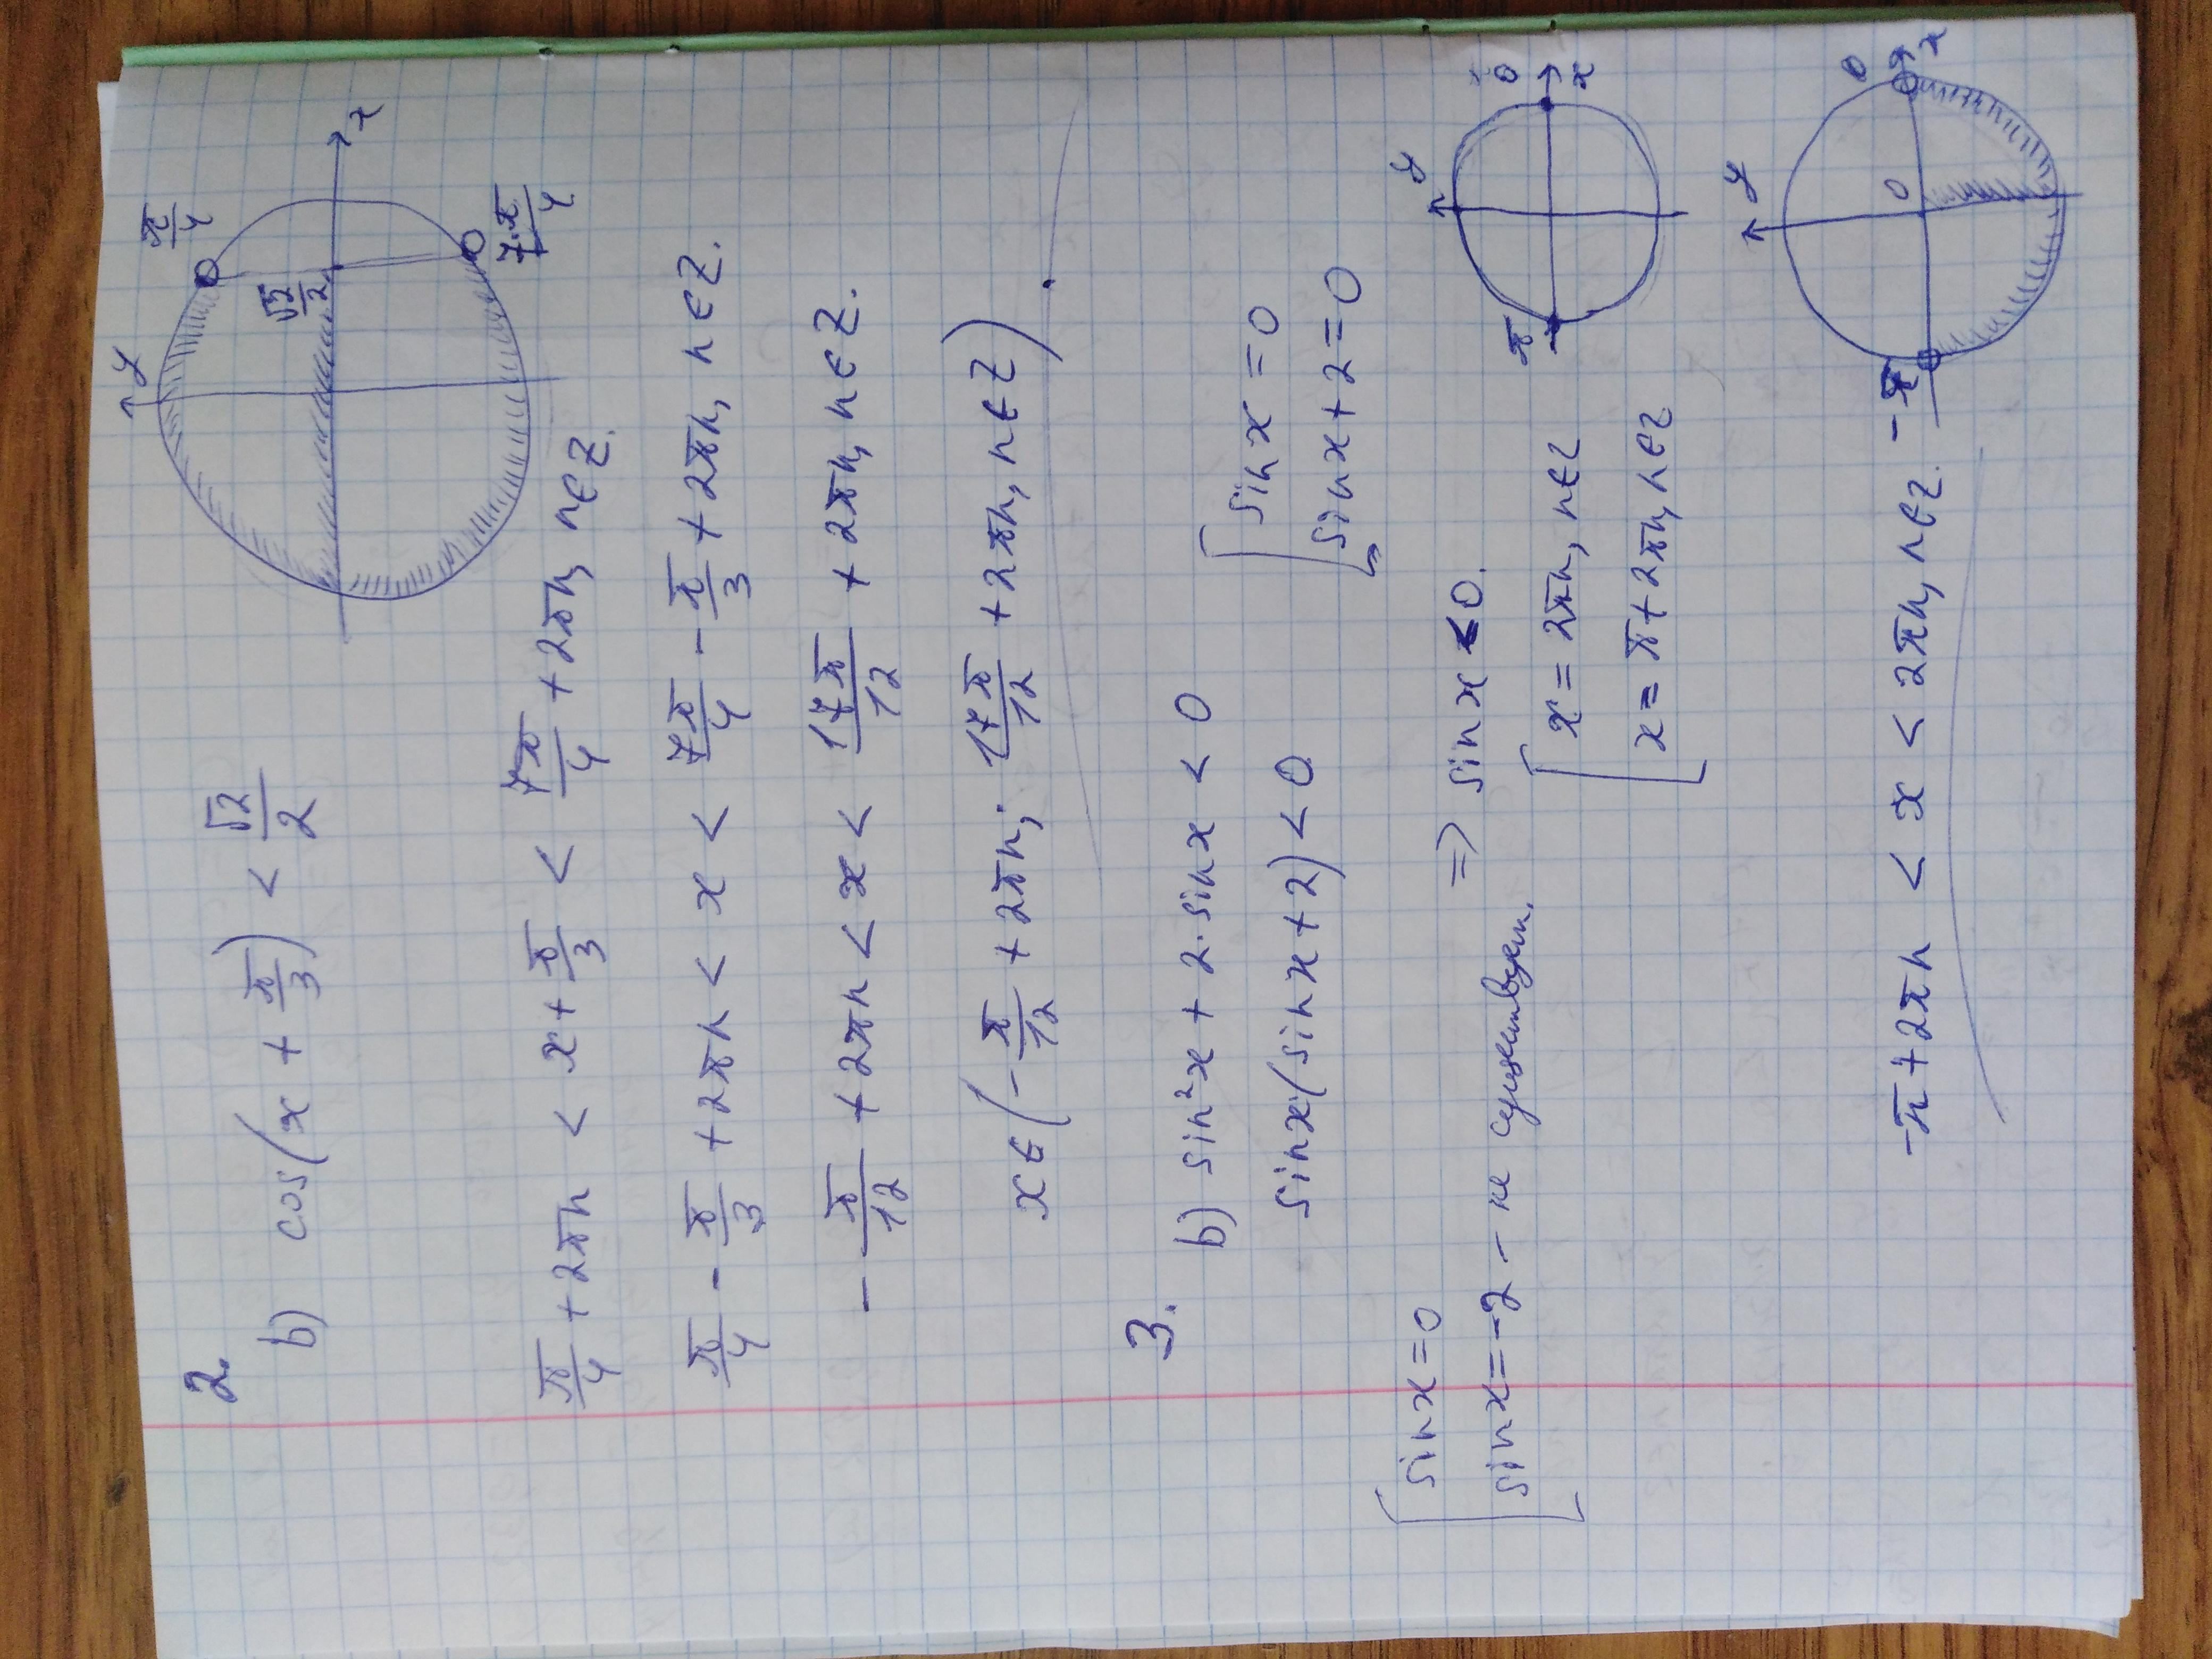 2.
b) cos(x + π/3) < √2/2
y
π/4
√2/2
x
7π/4
π/4 + 2πn < x + π/3 < 7π/4 + 2πn, n∈Z.
π/4 - π/3 + 2πn < x < 7π/4 - π/3 + 2πn, n∈Z.
- π/12 + 2πn < x < 17π/12 + 2πn, n∈Z.
x∈(- π/12 + 2πn; 17π/12 + 2πn, n∈Z).
3.
b) sin²x + 2·sinx < 0
sinx(sinx + 2) < 0
[ sinx = 0
sinx + 2 = 0
[ sinx = 0
sinx = -2 - не существует.
=> sinx < 0.
[ x = 2πn, n∈Z
x = π + 2πn, n∈Z
y
π
0
x
-π + 2πn < x < 2πn, n∈Z.
y
-π
0
0
x